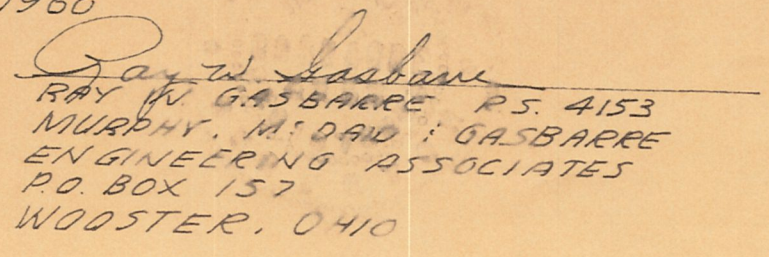 1960
Ray W. Gasbarre
RAY W. GASBARRE P.S. 4153
MURPHY, McDAID & GASBARRE
ENGINEERING ASSOCIATES
P.O. BOX 157
WOOSTER, OHIO